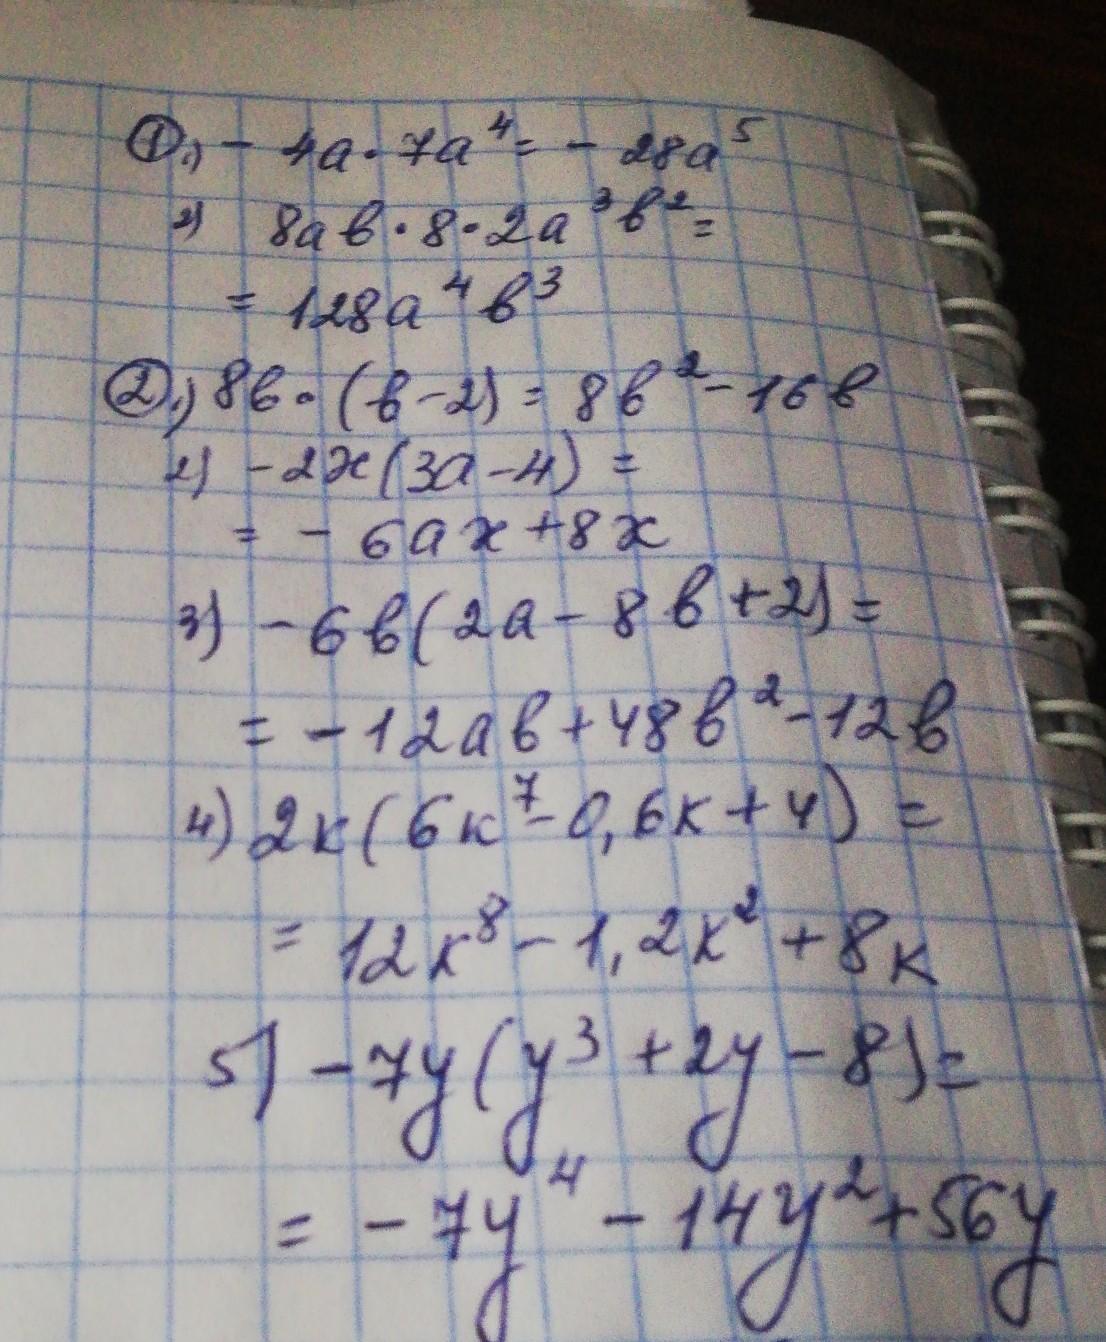 ① 1) - 4a · 7a⁴ = - 28a⁵
2) 8ав · 8 · 2a³в² =
= 128a⁴в³
② 1) 8в · (в - 2) = 8в² - 16в
2) - 2x(3a - 4) =
= - 6ax + 8x
3) - 6в(2a - 8в + 2) =
= - 12ав + 48в² - 12в
4) 2к(6к⁷ - 0,6к + 4) =
= 12к⁸ - 1,2к² + 8к
5) - 7y(y³ + 2y - 8) =
= - 7y⁴ - 14y² + 56y